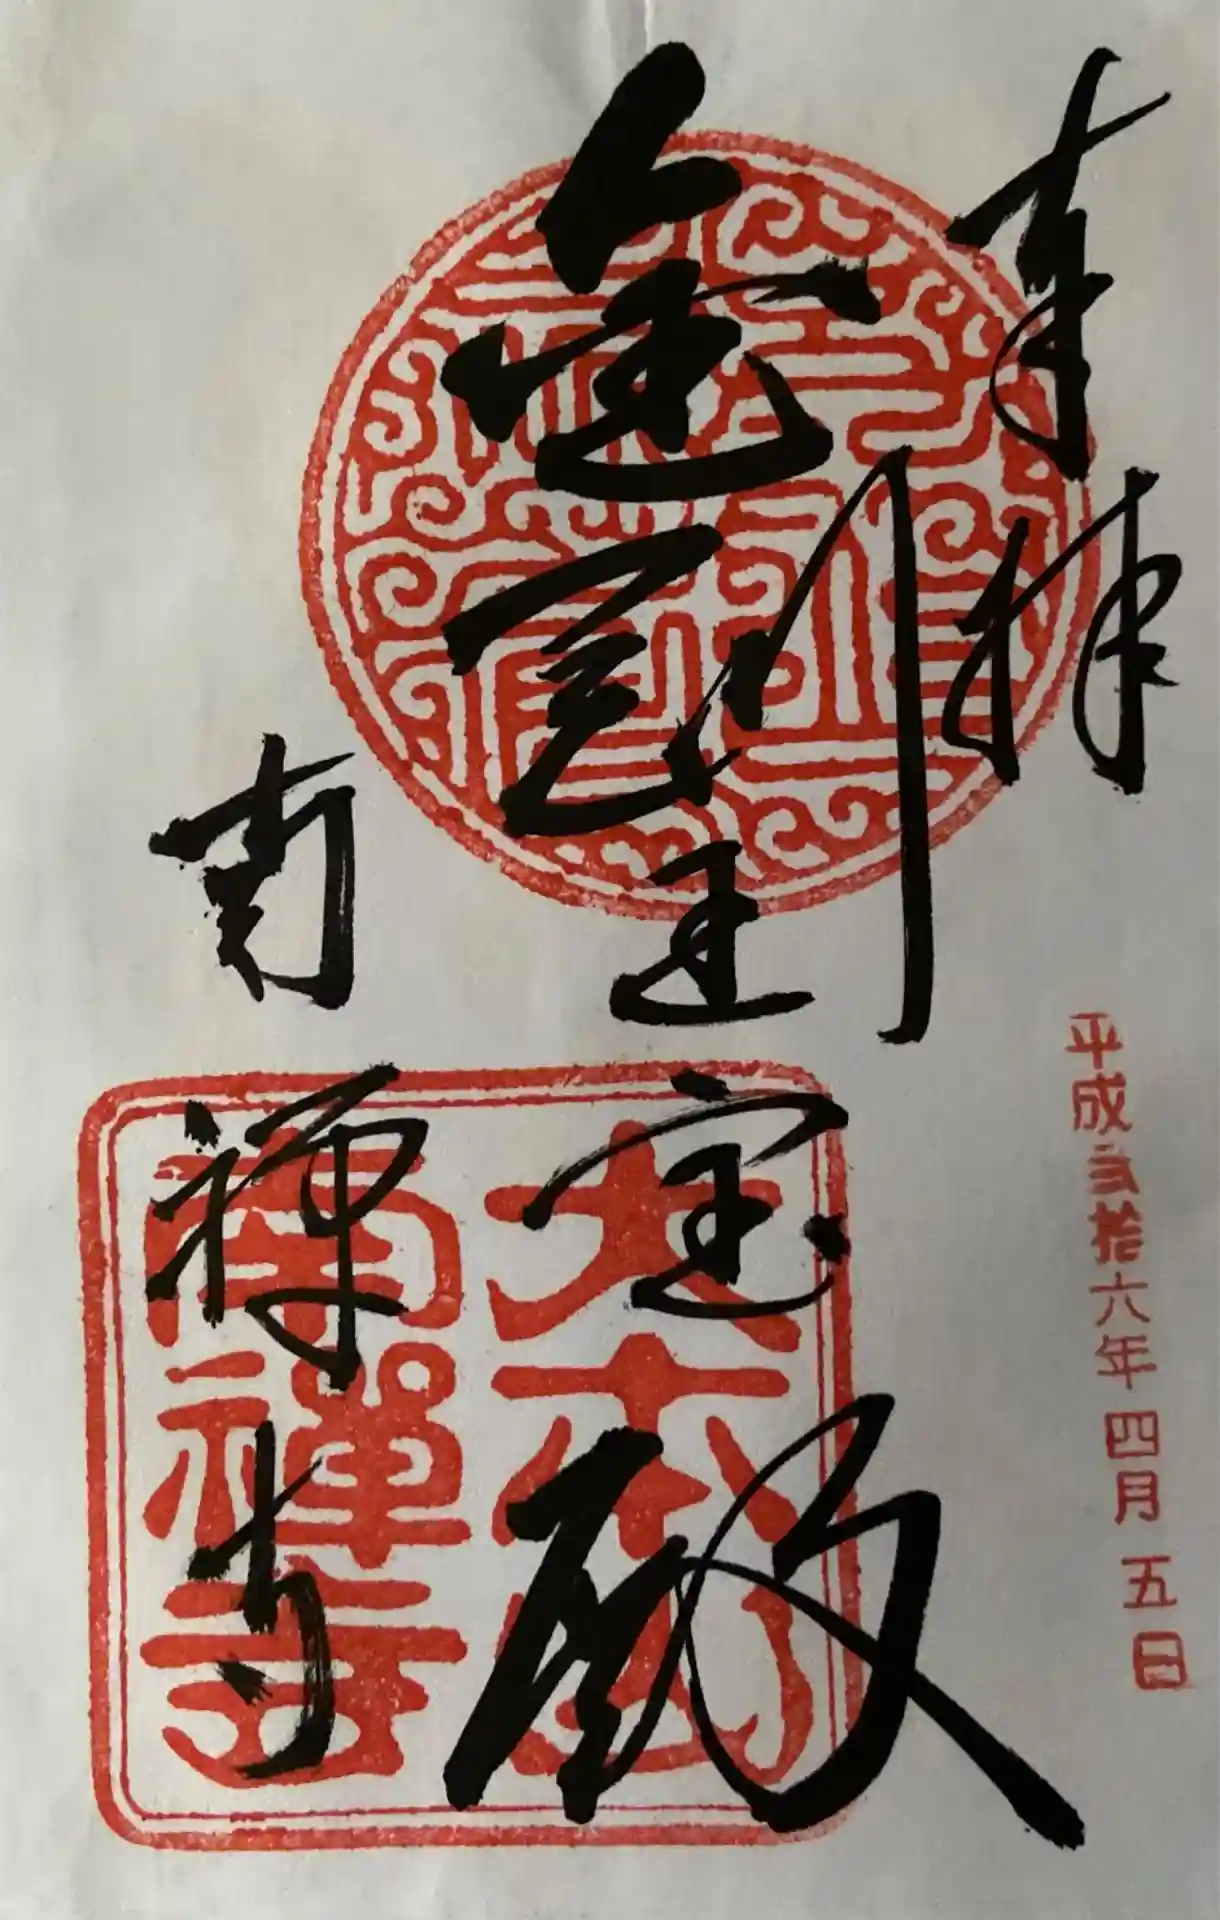 奉拝
平成弐拾六年四月五日
金剛王宝殿
南禅寺
大本山
南禪寺